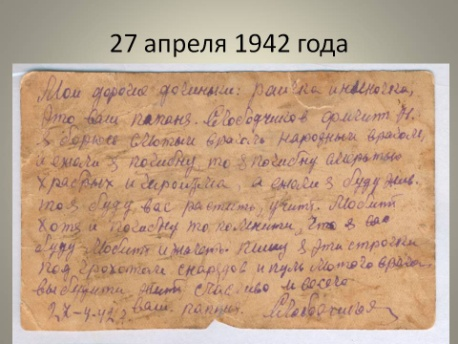 27 апреля 1942 года
Мои дорогие доченьки: раичка и ниночка,
Это ваш папаня. Слободчиков
Я борюсь с лютым врагом народным врагом,
и ежели я погибну, то я погибну смертью
храбрых и героизма, а ежели я буду жив.
то я буду вас растить, учить. Любить
Хотя и погибну то помните, что я вас
буду любить и жалеть. пишу я эти строчки
под грохотом снарядов и пуль лютого врага.
жить счастливо и весело
ваш. папа.